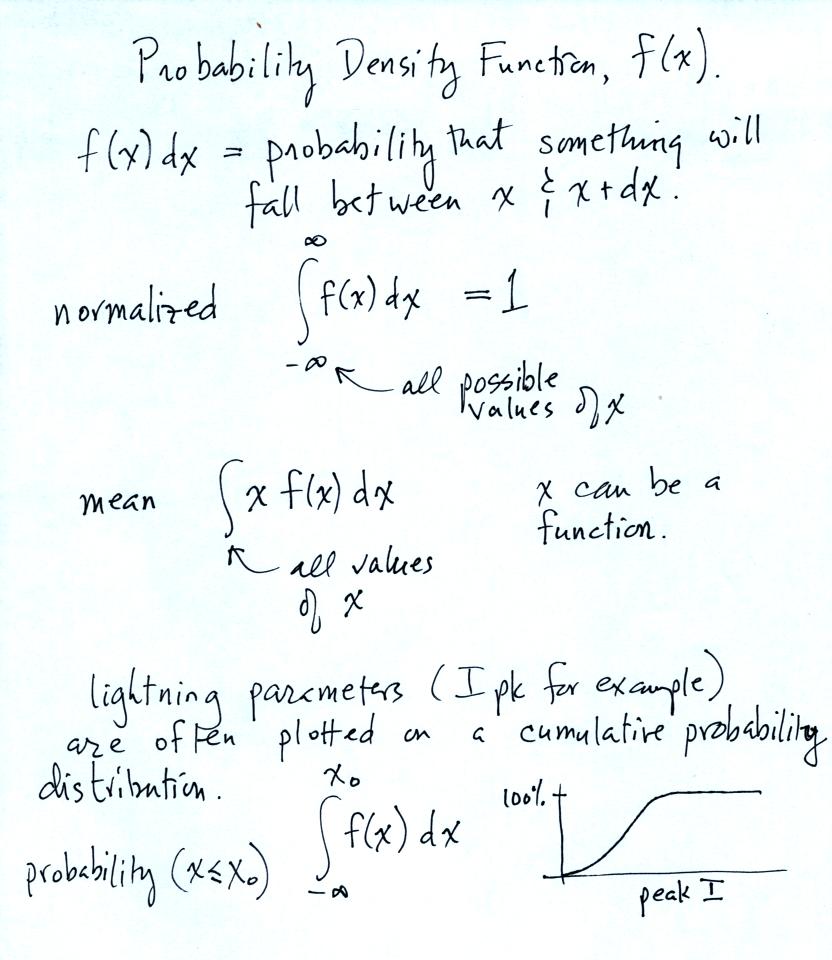 Probability Density Function, f(x).
f(x) dx = probability that something will
fall between x & x + dx.
normalized ∫_{-∞}^{∞} f(x) dx = 1
all possible
values of x
mean ∫ x f(x) dx
x can be a
function.
all values
of x
lightning parameters (I pk for example)
are often plotted on a cumulative probability
distribution.
probability (x ≤ x₀) ∫_{-∞}^{x₀} f(x) dx
100%
peak I